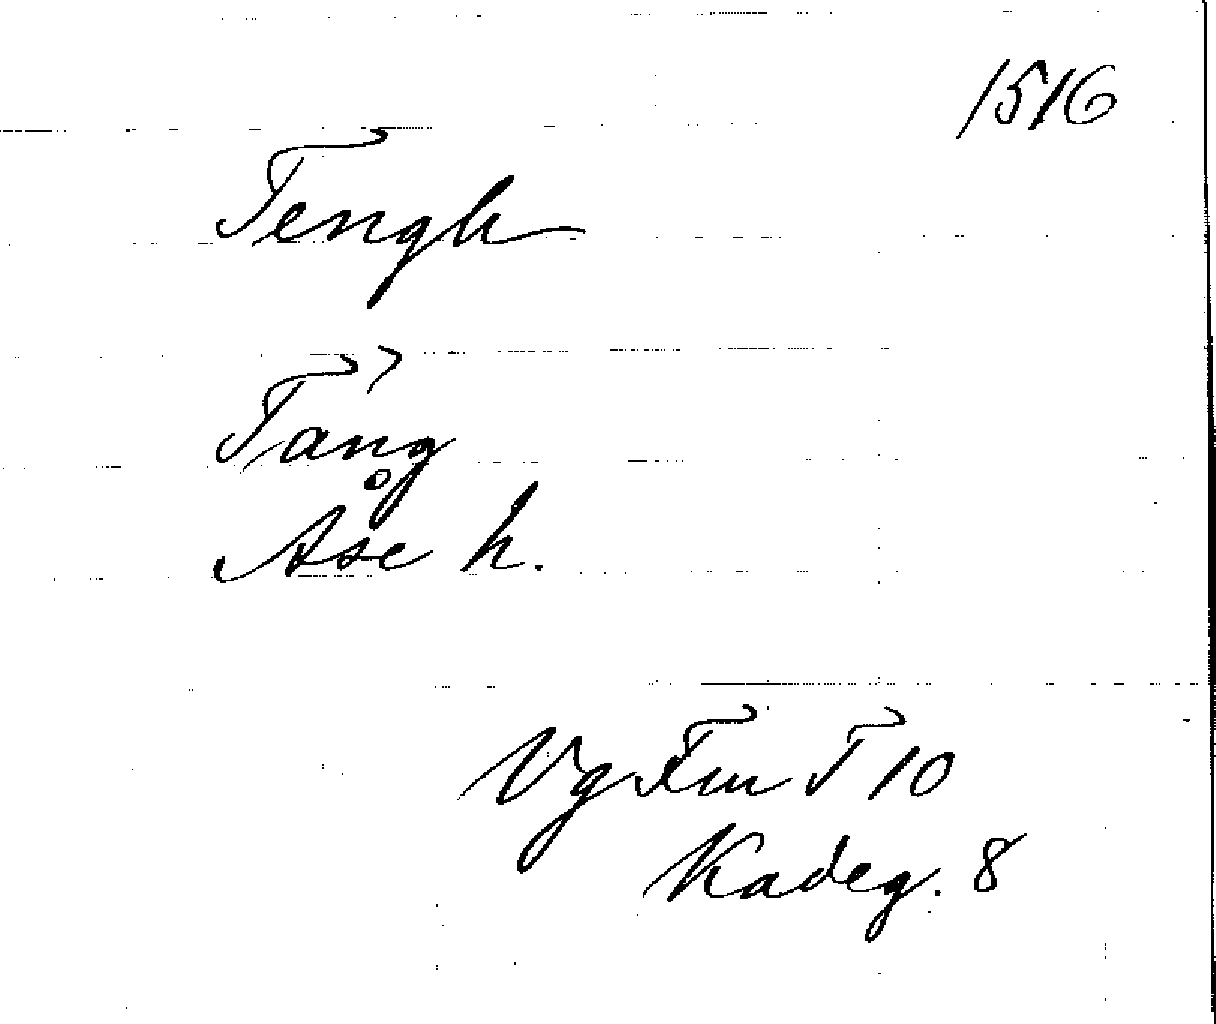 1516
Tengh
Tång
Åse h.
Vg Fru T 10
Kadeg. 8